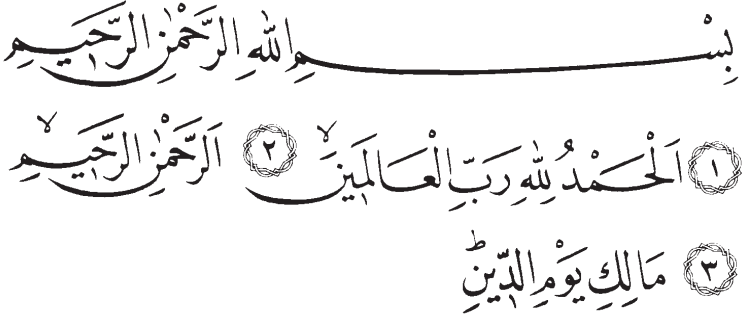 بِسْمِ اللهِ الرَّحْمٰنِ الرَّحِيمِ
١ اَلْحَمْدُ لِلهِ رَبِّ الْعَالَمِينَۙ ٢ اَلرَّحْمٰنِ الرَّحِيمِۙ
٣ مَالِكِ يَوْمِ الدِّينِۜ